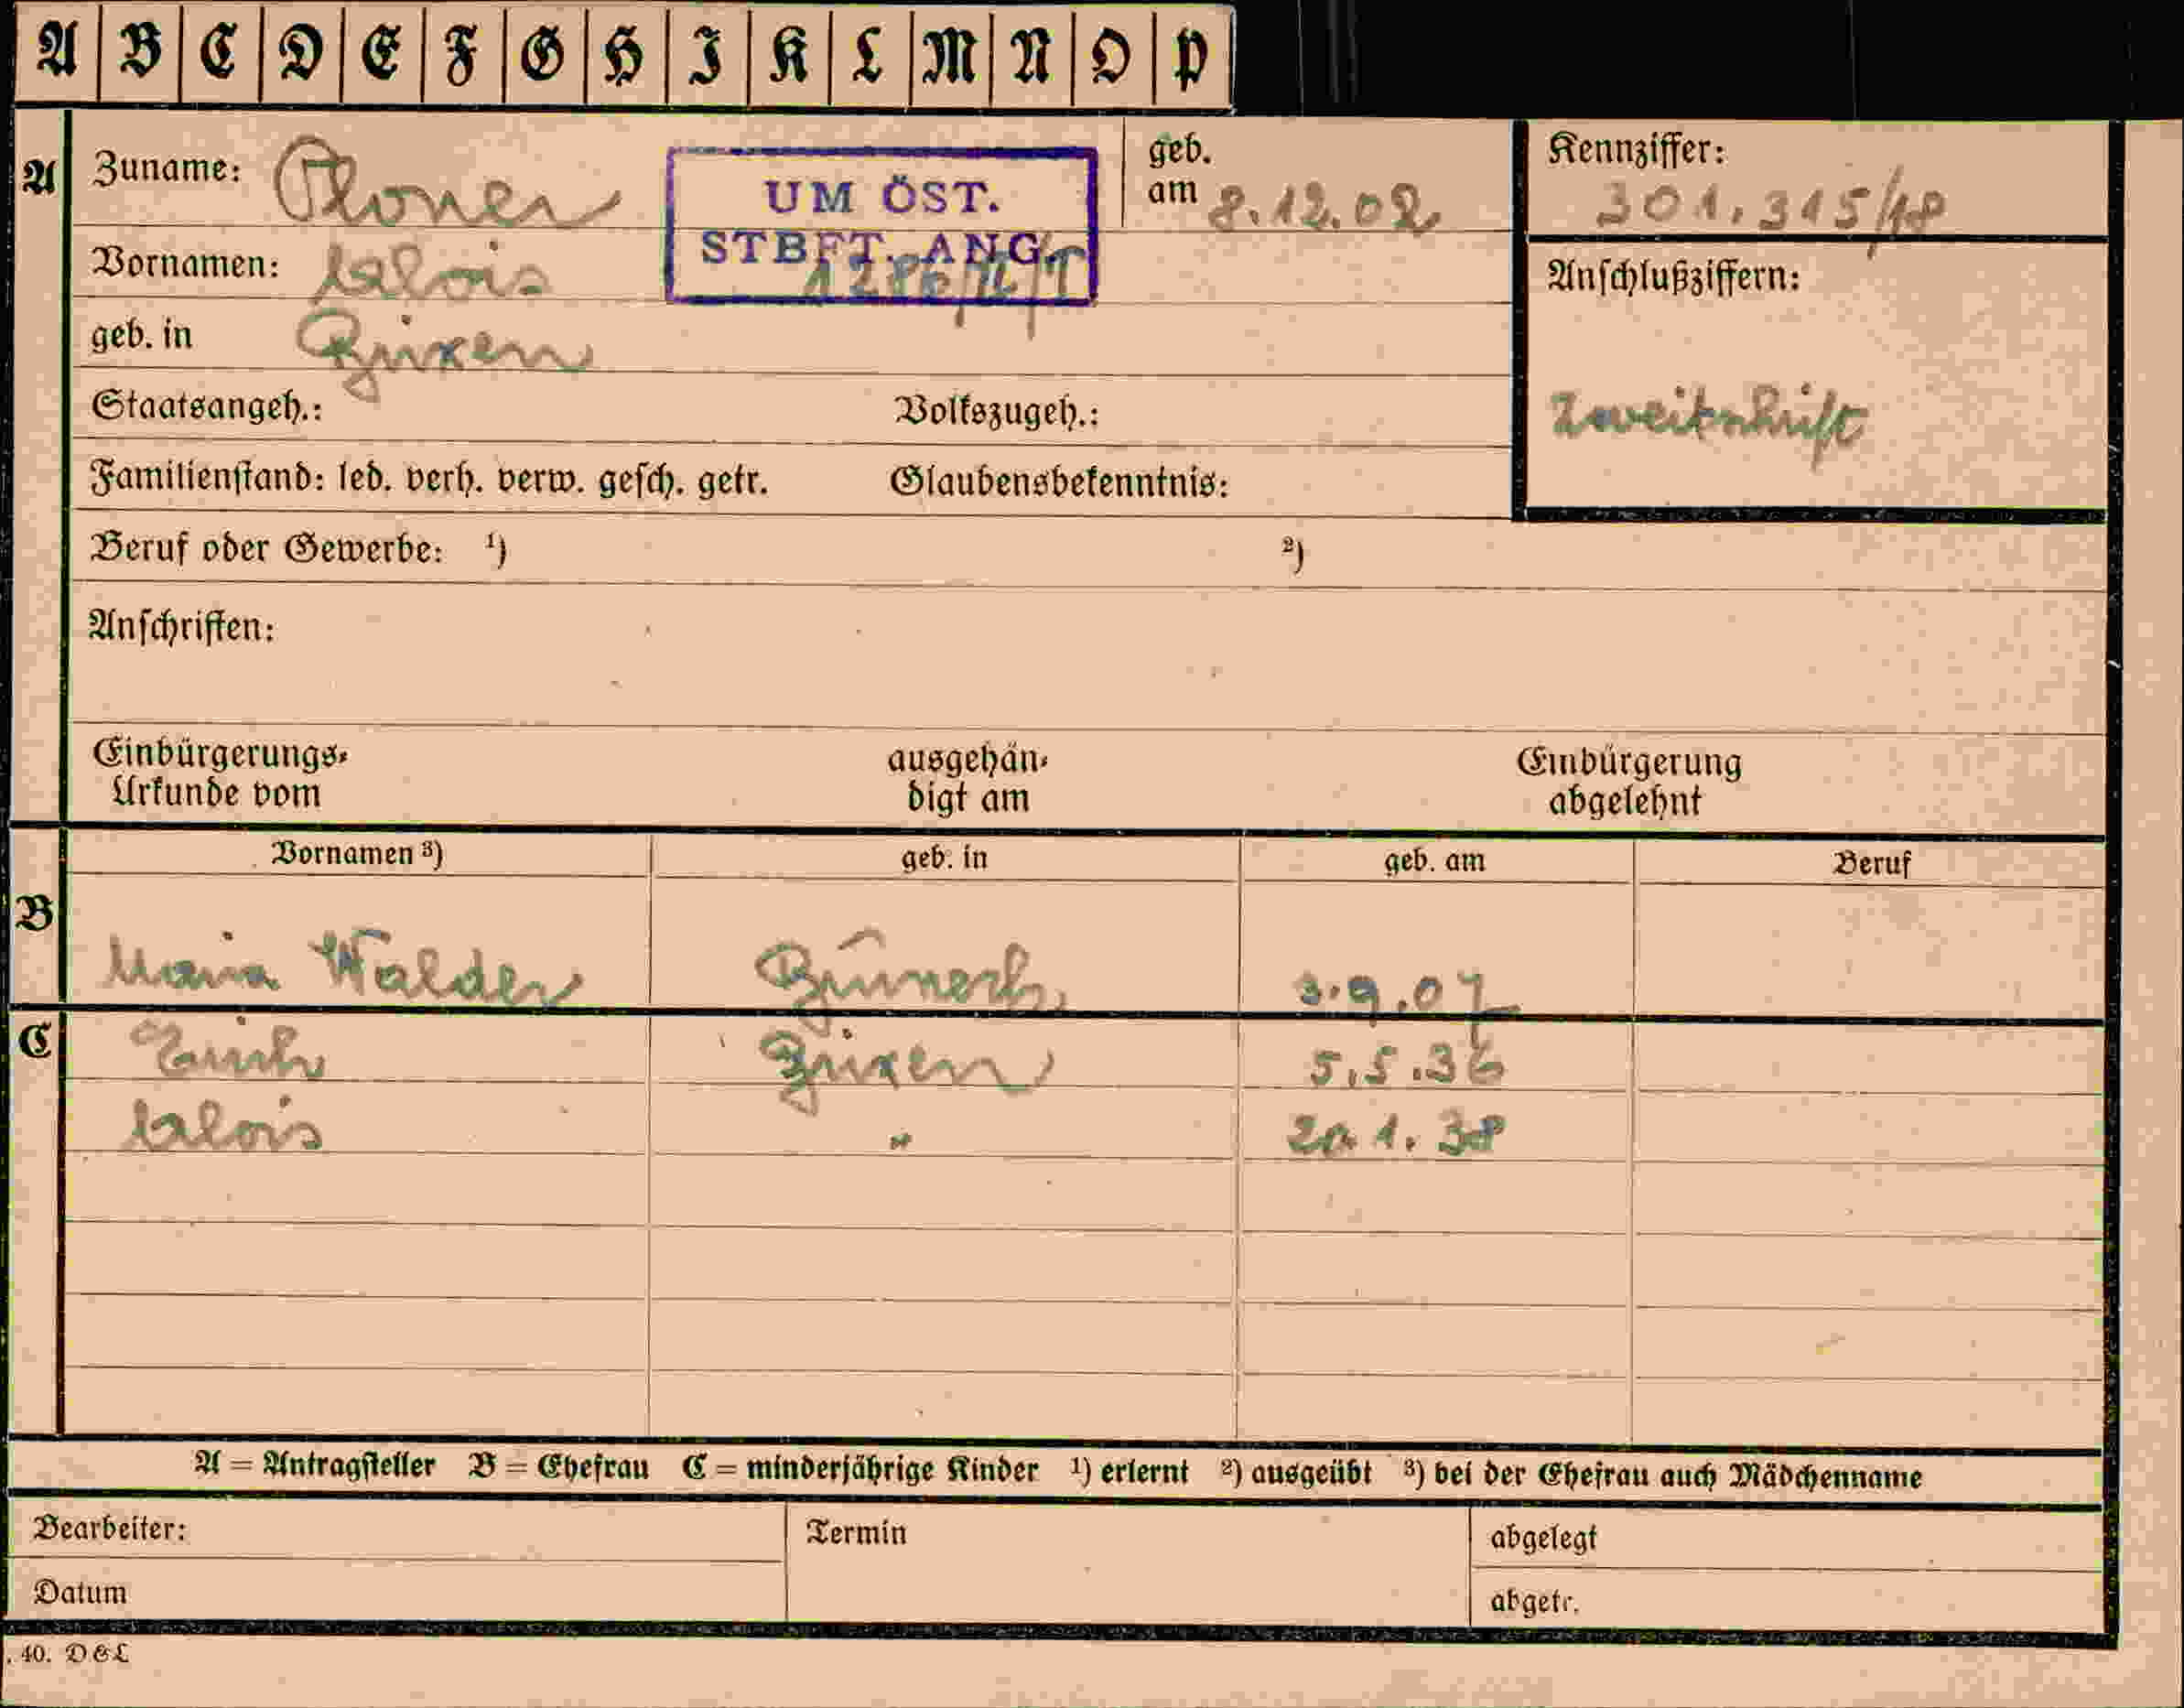 A B C D E F G H I K L M N O P
A Zuname: Ploner
UM ÖST.
STBFT. ANG.
geb. am 8.12.02.
Kennziffer:
301.315/48
Vornamen: Alois
Anschlußziffern:
geb. in Brixen
Zweitschrift
Staatsangeh.: Volkszugeh.:
Familienstand: led. verh. verw. gesch. getr. Glaubensbekenntnis:
Beruf oder Gewerbe: ¹) ²)
Anschriften:
Einbürgerungs- ausgehän- Einbürgerung
Urkunde vom digt am abgelehnt
Vornamen ³) geb. in geb. am Beruf
B
Maria Walder 3.9.07
C Erich Brixen 5.5.36
Alois " 20.1.38
A = Antragsteller B = Ehefrau C = minderjährige Kinder ¹) erlernt ²) ausgeübt ³) bei der Ehefrau auch Mädchenname
Bearbeiter: Termin abgelegt
Datum abgetr.
. 40. D & L